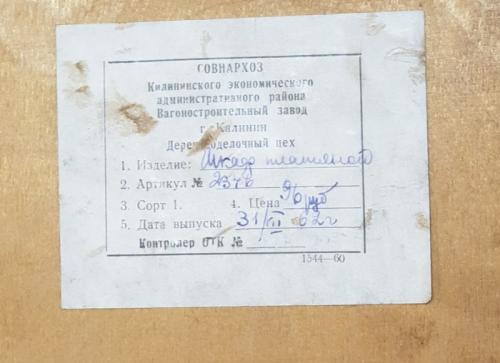 СОВНАРХОЗ
Килининского экономического
административного района
Вагоностроительный завод
г. Калинин
Деревоотделочный цех
1. Изделие: Шкаф платяной
2. Артикул №
3. Сорт 1. 4. Цена 96 руб
5. Дата выпуска 31/III 62г
Контролер ОТК №
1544—60